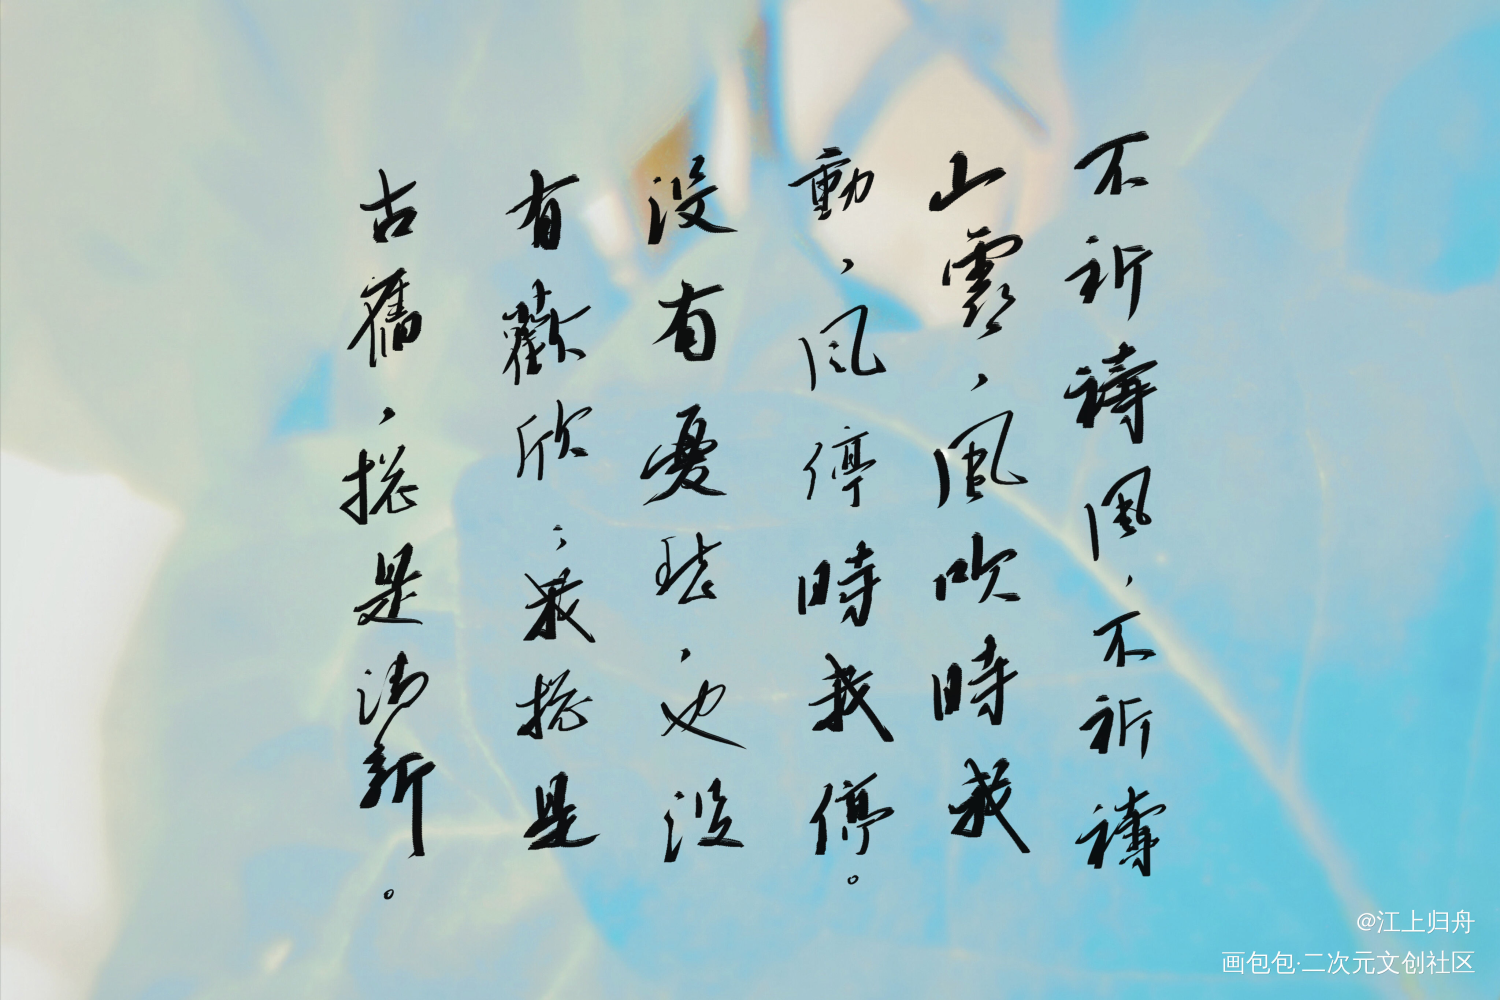 不祈禱風，不祈禱
山雲，風吹時我
動，風停時我停。
没有憂愁，也没
有歡欣，我總是
古舊，總是清新。
@江上归舟
画包包·二次元文创社区